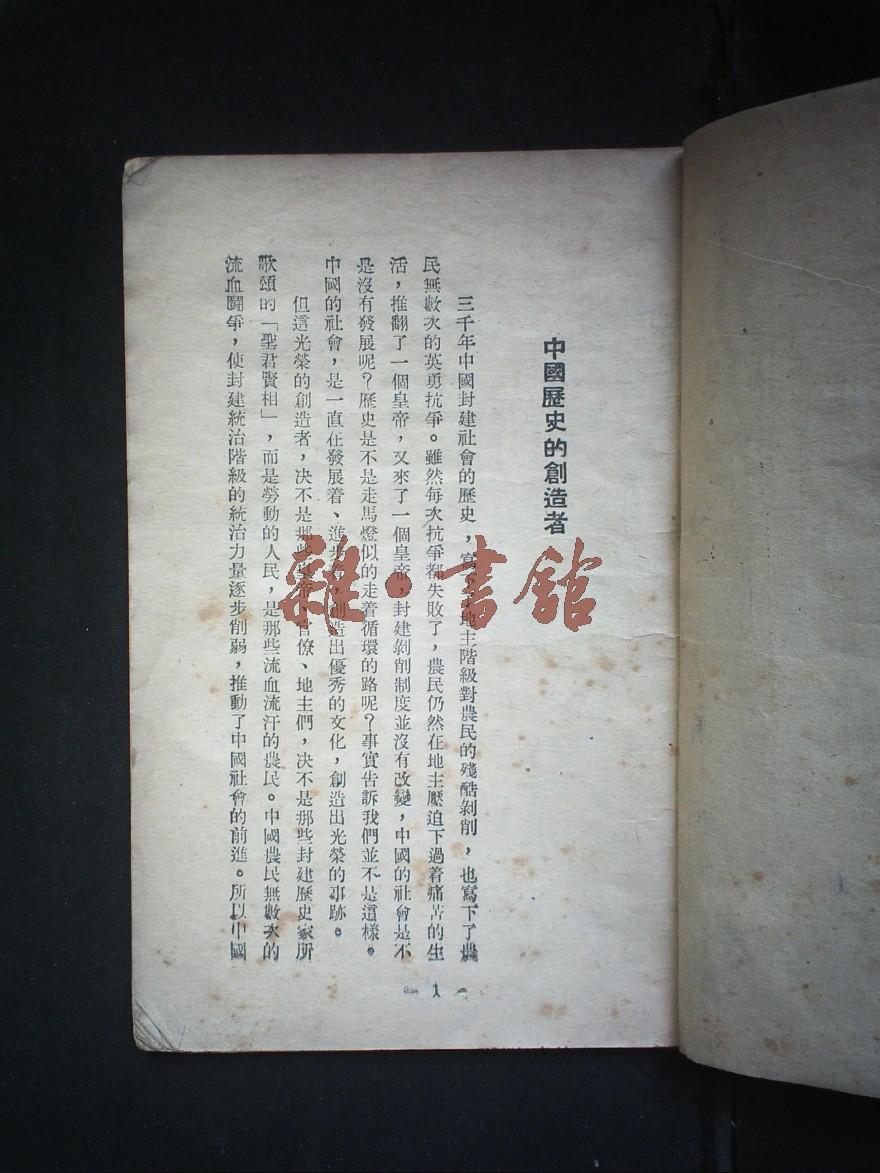 中國歷史的創造者
三千年中國封建社會的歷史，寫地主階級對農民的殘酷剝削，也寫下了農
民無數次的英勇抗爭。雖然每次抗爭都失敗了，農民仍然在地主壓迫下過着痛苦的生
活，推翻了一個皇帝，又來了一個皇帝，封建剝削制度並沒有改變，中國的社會是不
是沒有發展呢？歷史是不是走馬燈似的走着循環的路呢？事實告訴我們並不是這樣。
中國的社會，是一直在發展着、進步，創造出優秀的文化，創造出光榮的事跡。
但這光榮的創造者，决不是那些官僚、地主們，决不是那些封建歷史家所
歌頌的「聖君賢相」，而是勞動的人民，是那些流血流汗的農民。中國農民無數次的
流血鬪爭，使封建統治階級的統治力量逐步削弱，推動了中國社會的前進。所以中國
1
雜·書館